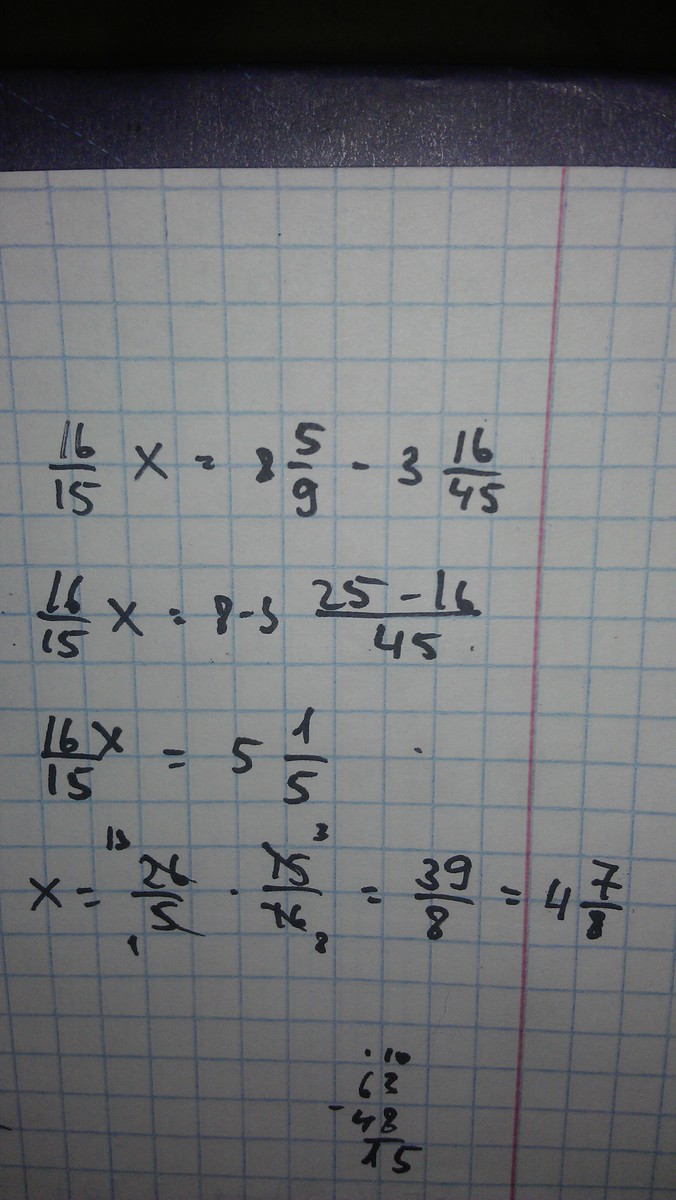 16/15 x = 8 5/9 - 3 16/45
16/15 x = 8-3 (25 - 16)/45
16x/15 = 5 1/5
x = 26/5 · 15/16 = 39/8 = 4 7/8
13 3
1 8
· 10
63
- 48
15